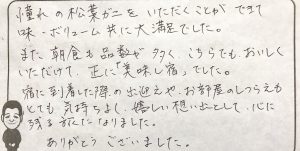 憧れの松葉ガニをいただくことができて
味・ボリューム共に大満足でした。
また朝食も品数が多く、こちらでもおいしく
いただけて、正に「美味し宿」でした。
宿に到着した際の出迎えや、お部屋のしつらえも
とても気持ちよく、嬉しい想い出として、心に
残る旅になりました。
ありがとうございました。